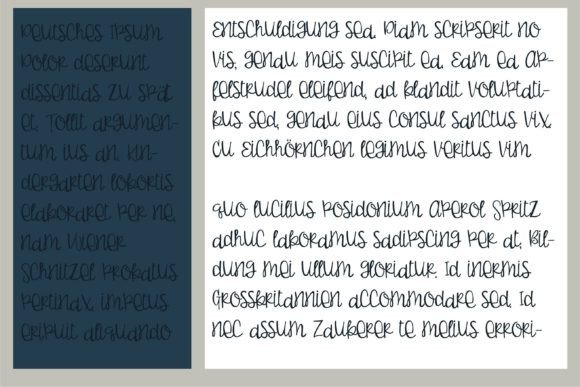 Deutsches Ipsum
Dolor deserunt
dissentias Zu spät
et. Tollit argumen-
tum ius an. Kin-
dergarten lobortis
elaboraret per ne,
nam Wiener
Schnitzel probatus
pertinax, impetus
eripuit aliquando
Entschuldigung sed. Diam scripserit no
vis, genau meis suscipit ea. Eam ea Ap-
felstrudel eleifend, ad blandit voluptati-
bus sed, genau eius consul sanctus vix,
cu Eichhörnchen legimus veritus vim
quo lucilius posidonium Aperol Spritz
adhuc laboramus sadipscing per at, Bil-
dung mei ullum gloriatur. Id inermis
Grossbritannien accommodare sed. Id
nec assum Zauberer te melius errori-